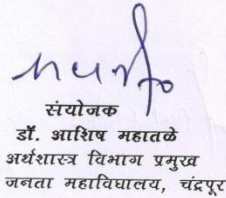 संयोजक
डॉ. आशिष महातळे
अर्थशास्त्र विभाग प्रमुख
जनता महाविद्यालय, चंद्रपूर